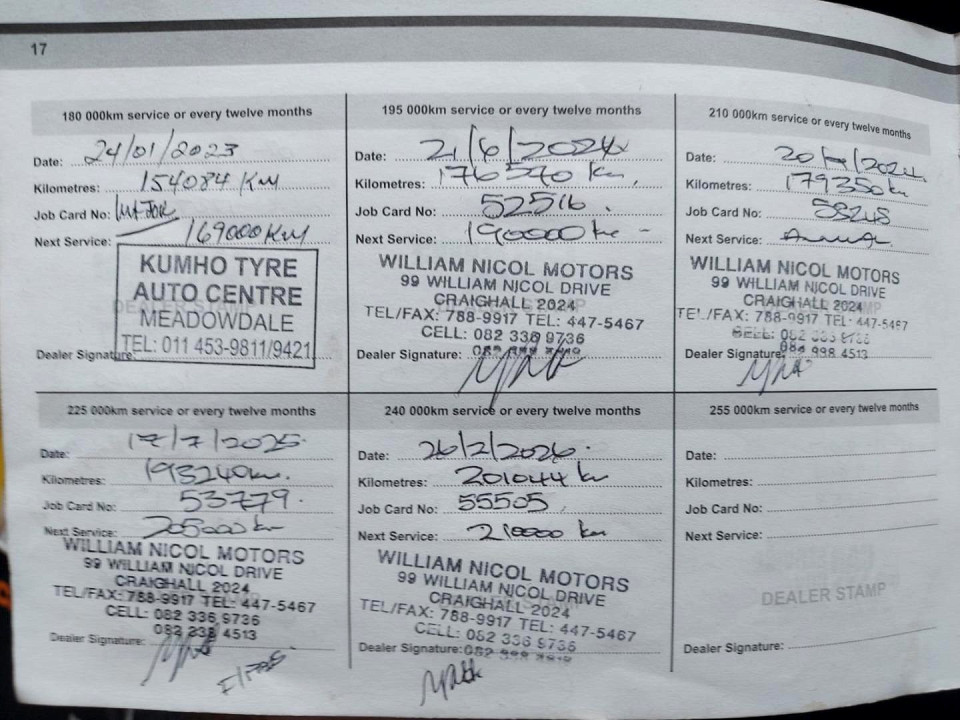 17
180 000km service or every twelve months
Date: 24/01/2023
Kilometres: 154084 KM
Job Card No:
Next Service: 169000 KM
KUMHO TYRE
AUTO CENTRE
DEALER STAMP
MEADOWDALE
TEL: 011 453-9811/9421
Dealer Signature:
195 000km service or every twelve months
Date: 21/6/2024
Kilometres: 176570 km,
Job Card No: 52516.
Next Service: 190000 km -
WILLIAM NICOL MOTORS
99 WILLIAM NICOL DRIVE
CRAIGHALL 2024
TEL/FAX: 788-9917 TEL: 447-5467
CELL: 082 336 9736
Dealer Signature:
210 000km service or every twelve months
Date:
Kilometres: 179350 km
Job Card No:
Next Service:
WILLIAM NICOL MOTORS
99 WILLIAM NICOL DRIVE
CRAIGHALL 2024
TEL/FAX: 788-9917 TEL: 447-5467
CELL: 082 336
998 4513
Dealer Signature:
225 000km service or every twelve months
Date: 17/7/2025.
Kilometres: 193240 km.
Job Card No: 53779.
Next Service: 205000 km
WILLIAM NICOL MOTORS
99 WILLIAM NICOL DRIVE
CRAIGHALL 2024
TEL/FAX: 788-9917 TEL: 447-5467
CELL: 082 336 9736
4513
Dealer Signature:
240 000km service or every twelve months
Date: 26/2/2026.
Kilometres: 201044 km
Job Card No: 55505
Next Service: 210000 km
WILLIAM NICOL MOTORS
99 WILLIAM NICOL DRIVE
CRAIGHALL 2024
TEL/FAX: 788-9917 TEL: 447-5467
CELL: 082 336 9736
Dealer Signature:
255 000km service or every twelve months
Date:
Kilometres:
Job Card No:
Next Service:
DEALER STAMP
Dealer Signature: